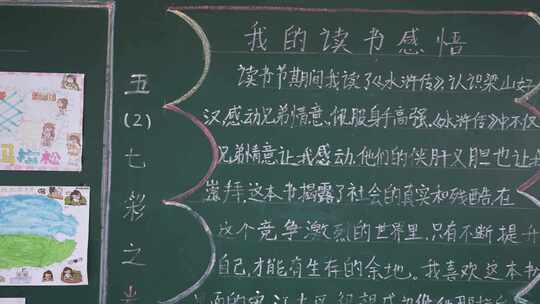 我的读书感悟
读书节期间我读了《水浒传》,认识梁山好
汉,感动兄弟情意、佩服身手高强。《水浒传》中不仅
兄弟情意让我感动,他们的侠肝义胆也让
崇拜,这本书揭露了社会的真实和残酷,在
这个竞争激烈的世界里,只有不断提升
自己,才能有生存的余地。我喜欢这本书
五(2)七彩之
松